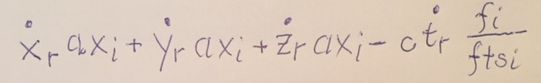 ẋᵣ axᵢ + ẏᵣ axᵢ + żᵣ axᵢ − cṫᵣ fi/ftsi